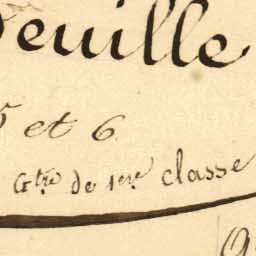 Feuille
5 et 6
Gtre de 1ere classe
9